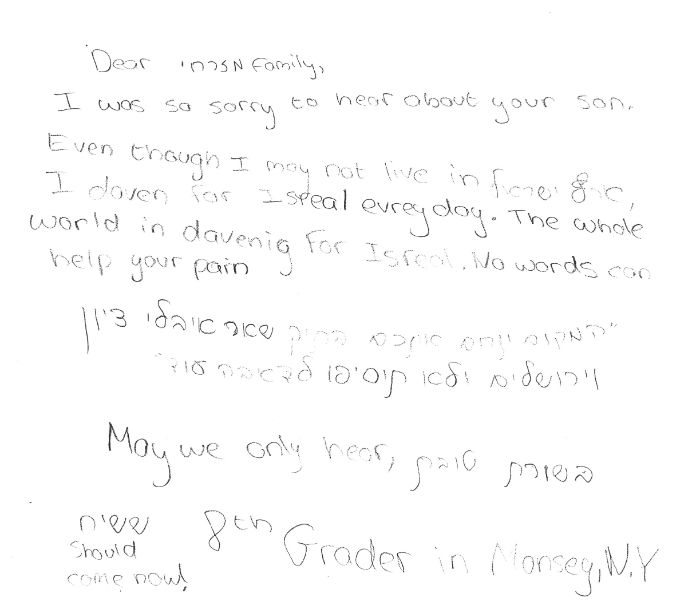 Dear מזרחי family,
I was so sorry to hear about your son.
Even though I may not live in ארץ ישראל,
I daven for Isreal evrey day. The whole
world in davenig for Isreal. No words can
help your pain
"המקום ינחם אתכם בתוך שאר איבלי ציון
וירושלים ולא תוסיפו לדאבה עוד"
May we only hear, בשורת טובת
8th Grader in Monsey, N.Y
משיח
should
come now!